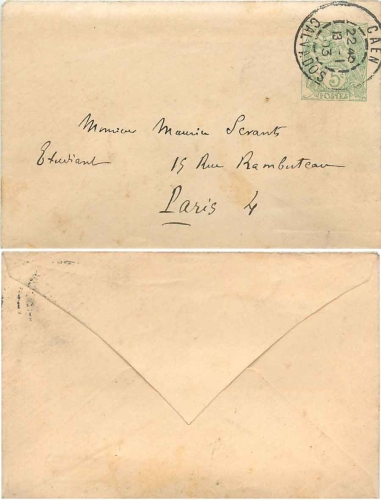 CAEN
22 40
13 - 1
03
CALVADOS
5
POSTES
Monsieur Maurice Servants
Etudiant 15 Rue Rambuteau
Paris 4